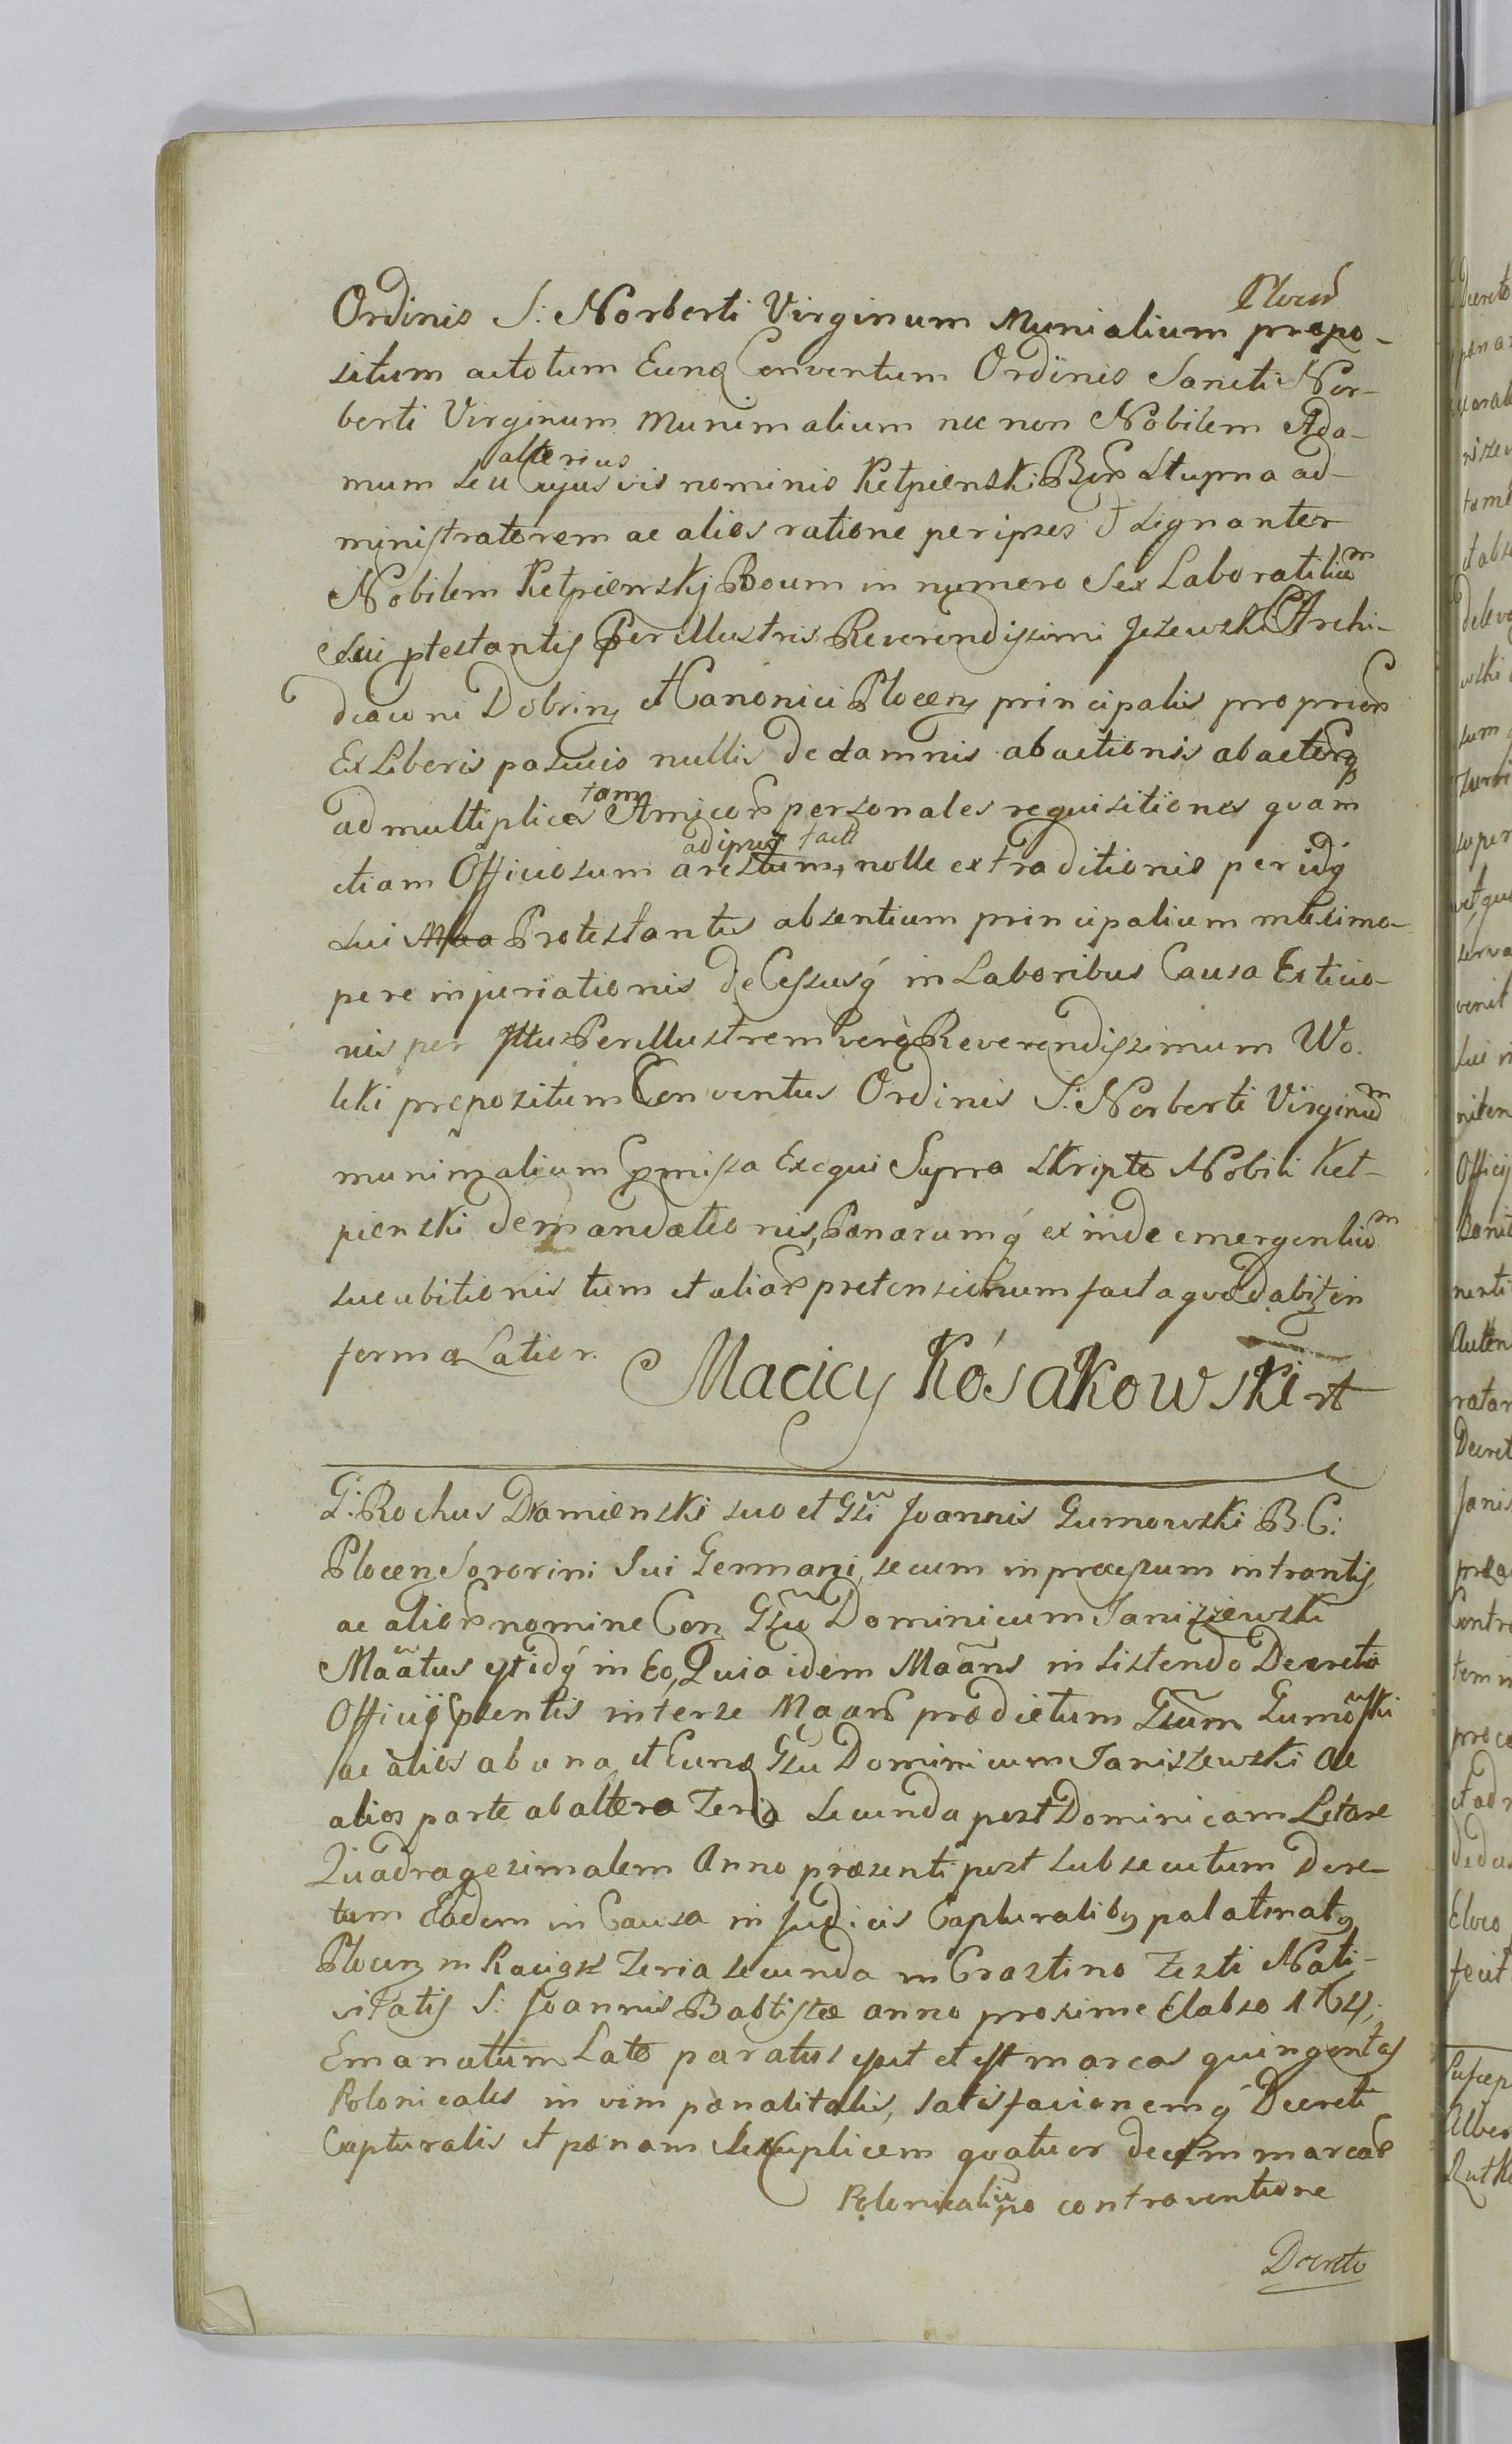 Ordinis S: Norberti Virginum Munialium Plocen prepo-
situm ac totum Eunq Conventum Ordinis Sancti Nor-
berti Virginum Munimalium nec non Nobilem Ada-
mum seu alterius Cujusvis nominis Kełpienski Stupna ad-
ministratorem ac alios ratione per ipsos d signanter
Nobilem Kełpienskj Boum in numero Sex Laboratilium
Sui ptestantis Perillustris Reverendissimi Jeżewski Archi-
diaconi Dobrinz et Canonici Plocenz principalis proprior
Ex Liberis pascuis nullis de damnis abactionis abactorq
ad multiplices tam Amicor personales requisitiones quam
etiam Officiosum arestum, ad ipsos fact nolle extraditionis per idq
sui Protestantis absentium principalium
pere injuriationis deCessusq in Laboribus Causa
nis per Perillustrem vero Reverendissimum Wo
lski prepositum Conventus Ordinis S: Norberti Virginum
munimalium pmissa Exequi Supra skripto Nobili Keł-
pienski demandationis, Panarumq ex inde emergentium
sucubitionis tum et alior pretensionum facta quo dabitz in
forma Latior. Maciey Kósakowski
G: Rochus Damienski suo et Gsi Joannis Gumowski B. C:
Plocen Sororini Sui Germani, secum in processum intrantis
ac alior nomine Con Gsu Dominicum Janiszewski
Maatus est idq in Eo, Quia idem Maans in sistendo Decreto
Officii pstentis inter se Maans prædictum Gsum Gumoski
ac alios ab una, et Eunq Gsu Dominicum Janiszewski ac
alios parte ab altera Feria Secunda post Dominicam Letare
Quadragesimalem Anno præsenti post subsecutum Decre-
tum Eadem in Causa in Judiciis Capturalibq palatinatq
Plocenz in Raciąsz Feria secunda in Crastino Festi Nati-
vitatis S: Joannis Babtistæ anno proxime Elabso
Emanatum Lato paratus est et est marcas quingentas
Polonicales in vim pœnalitatis, satisfacionemq Decreti
Capturalis et pœnam Sexuplicem quatuor decem marcar
Polonicaliu po contraventione
Decreto